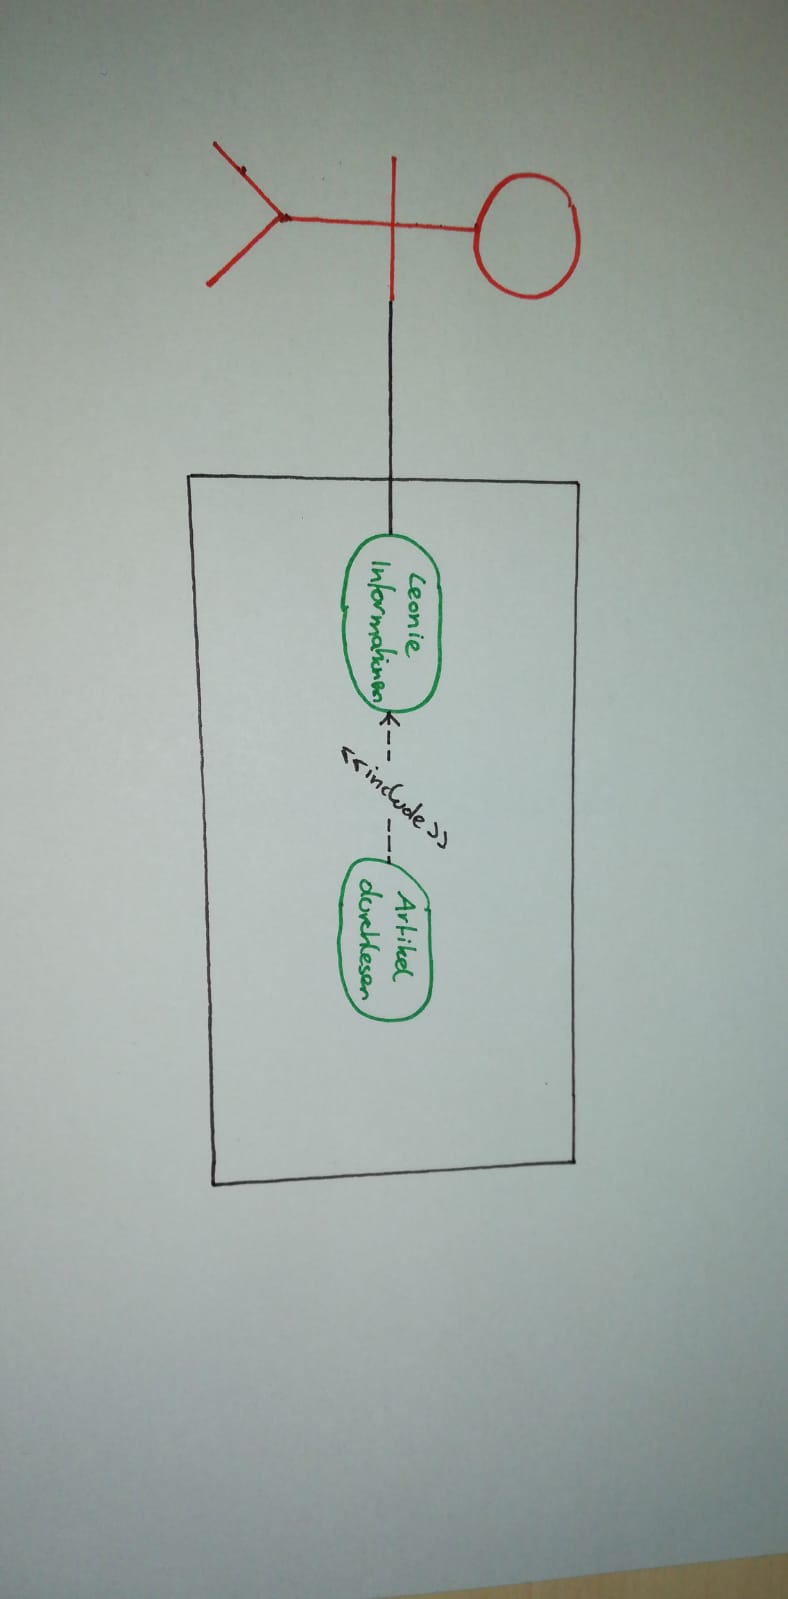 Leonie
Informationen
<<include>>
Artikel
durchlesen